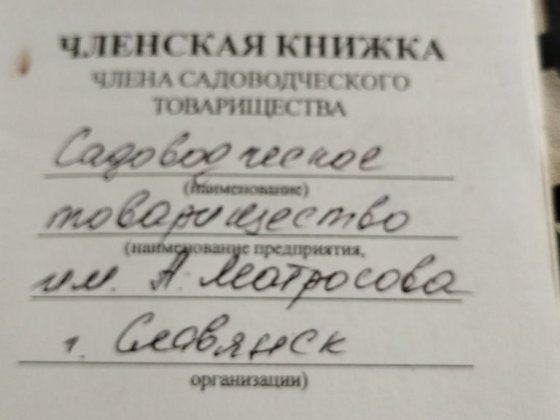 ЧЛЕНСКАЯ КНИЖКА
ЧЛЕНА САДОВОДЧЕСКОГО
ТОВАРИЩЕСТВА
Садоводческое
(наименование)
товарищество
(наименование предприятия,
им. А. Матросова
г. Славянск
организации)